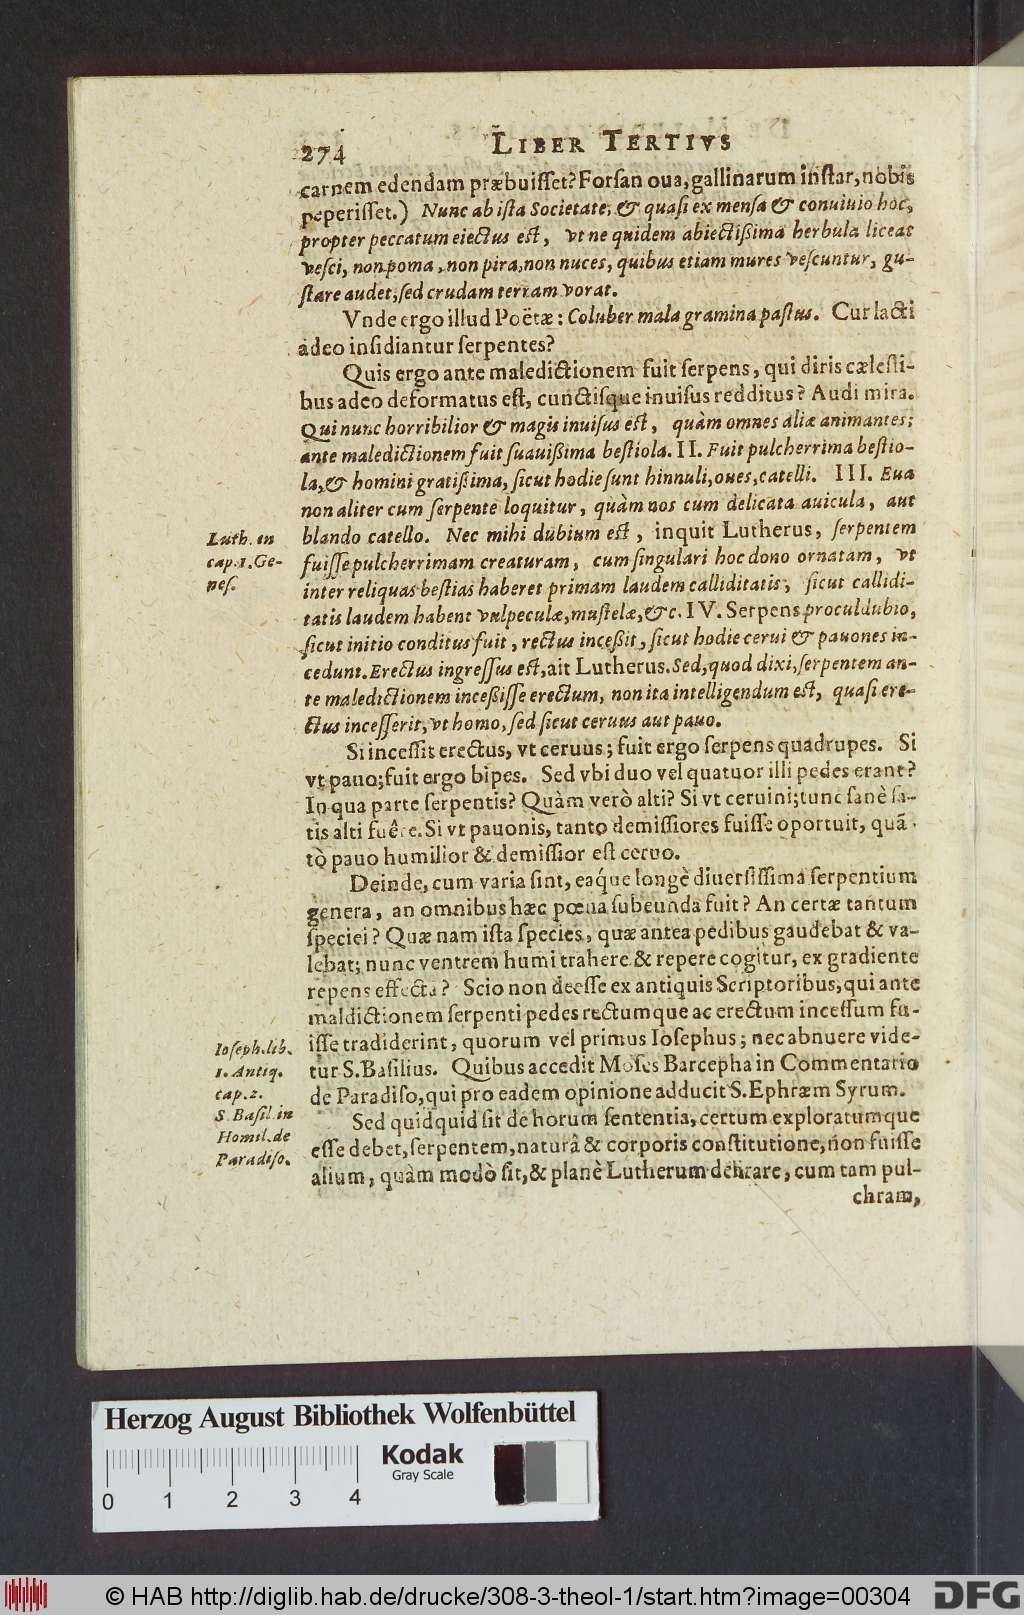 274 LIBER TERTIVS
carnem edendam præbuiſſet? Forſan oua, gallinarum inſtar, nobis
peperiſſet.) Nunc ab iſta Societate, & quaſi ex menſa & conuiuio hoc,
propter peccatum eiectus eſt, vt ne quidem abiectißima herbula liceat
veſci, non poma, non pira, non nuces, quibus etiam mures veſcuntur, gu-
ſtare audet, ſed crudam terram vorat.
Vnde ergo illud Poëtæ: Coluber mala gramina paſtus. Cur lacti
adeo inſidiantur ſerpentes?
Quis ergo ante maledictionem fuit ſerpens, qui diris cæleſti-
bus adeo deformatus eſt, cunctiſque inuiſus redditus? Audi mira.
Qui nunc horribilior & magis inuiſus eſt, quàm omnes aliæ animantes;
ante maledictionem fuit ſuauißima beſtiola. II. Fuit pulcherrima beſtio-
la, & homini gratißima, ſicut hodie ſunt hinnuli, oues, catelli. III. Eua
non aliter cum ſerpente loquitur, quàm nos cum delicata auicula, aut
blando catello. Nec mihi dubium eſt, inquit Lutherus, ſerpentem
fuiſſe pulcherrimam creaturam, cum ſingulari hoc dono ornatam, vt
inter reliquas beſtias haberet primam laudem calliditatis, ſicut callidi-
tatis laudem habent vulpeculæ, muſtelæ, &c. IV. Serpens proculdubio,
ſicut initio conditus fuit, rectus inceßit, ſicut hodie cerui & pauones in-
cedunt. Erectus ingreſſus eſt, ait Lutherus. Sed, quod dixi, ſerpentem an-
te maledictionem inceßiſſe erectum, non ita intelligendum eſt, quaſi ere-
ctus inceſſerit, vt homo, ſed ſicut ceruus aut pauo.
Si inceſſit erectus, vt ceruus; fuit ergo ſerpens quadrupes. Si
vt pauo; fuit ergo bipes. Sed vbi duo vel quatuor illi pedes erant?
In qua parte ſerpentis? Quàm verò alti? Si vt ceruini; tunc ſanè ſa-
tis alti fuêre. Si vt pauonis, tanto demiſſiores fuiſſe oportuit, quã-
tò pauo humilior & demiſſior eſt ceruo.
Deinde, cum varia ſint, eáque longè diuerſiſſima ſerpentium
genera, an omnibus hæc pœna ſubeunda fuit? An certæ tantum
ſpeciei? Quæ nam iſta ſpecies, quæ antea pedibus gaudebat & va-
lebat; nunc ventrem humi trahere & repere cogitur, ex gradiente
repens effecta? Scio non deeſſe ex antiquis Scriptoribus, qui ante
maldictionem ſerpenti pedes rectumque ac erectum inceſſum fu-
iſſe tradiderint, quorum vel primus Ioſephus; nec abnuere vide-
tur S. Baſilius. Quibus accedit Moſes Barcepha in Commentario
de Paradiſo, qui pro eadem opinione adducit S. Ephræm Syrum.
Sed quidquid ſit de horum ſententia, certum exploratumque
eſſe debet, ſerpentem, naturâ & corporis conſtitutione, non fuiſſe
alium, quàm modò ſit, & planè Lutherum delirare, cum tam pul-
chram,
Luth. in
cap. 1. Ge-
neſ.
Ioſeph. lib.
1. Antiq.
cap. 2.
S. Baſil. in
Homil. de
Paradiſo.
Herzog August Bibliothek Wolfenbüttel
Kodak
Gray Scale
0 1 2 3 4
© HAB http://diglib.hab.de/drucke/308-3-theol-1/start.htm?image=00304
DFG